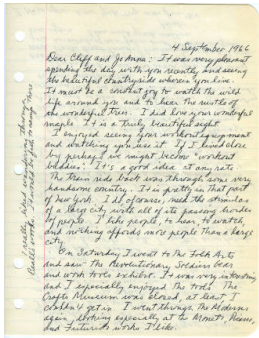 4 September, 1966
Dear Cliff and Johnson: It was very pleasant
spending the day with you recently and seeing
the beautiful countryside wherein you live.
It must be a constant joy to watch the wild
life around you and to hear the rustle of
the wonderful trees. I did love your wonderful
maple. It is a truly beautiful sight.
I enjoyed seeing your workout equipment
and watching you use it. If I lived close
by perhaps we might become "workout
buddies". It's a good idea at any rate.
The train ride back was through some very
handsome country. It is pretty in that part
of New York. I do, of course, need the stimulus
of a large city with all of its passing hordes
of people. I like people, to hear, to watch,
and nothing affords more people than a large
city.
On Saturday I went to the Folk Art
and saw the Revolutionary Soldiers
and work tools exhibit. It was very interesting
and I especially enjoyed the tools. The
Crafts Museum was closed, at least I
couldn't get in. I went through the Moderns
again, looking especially at the Monets,
and Futurist works I like.
I really liked wandering through